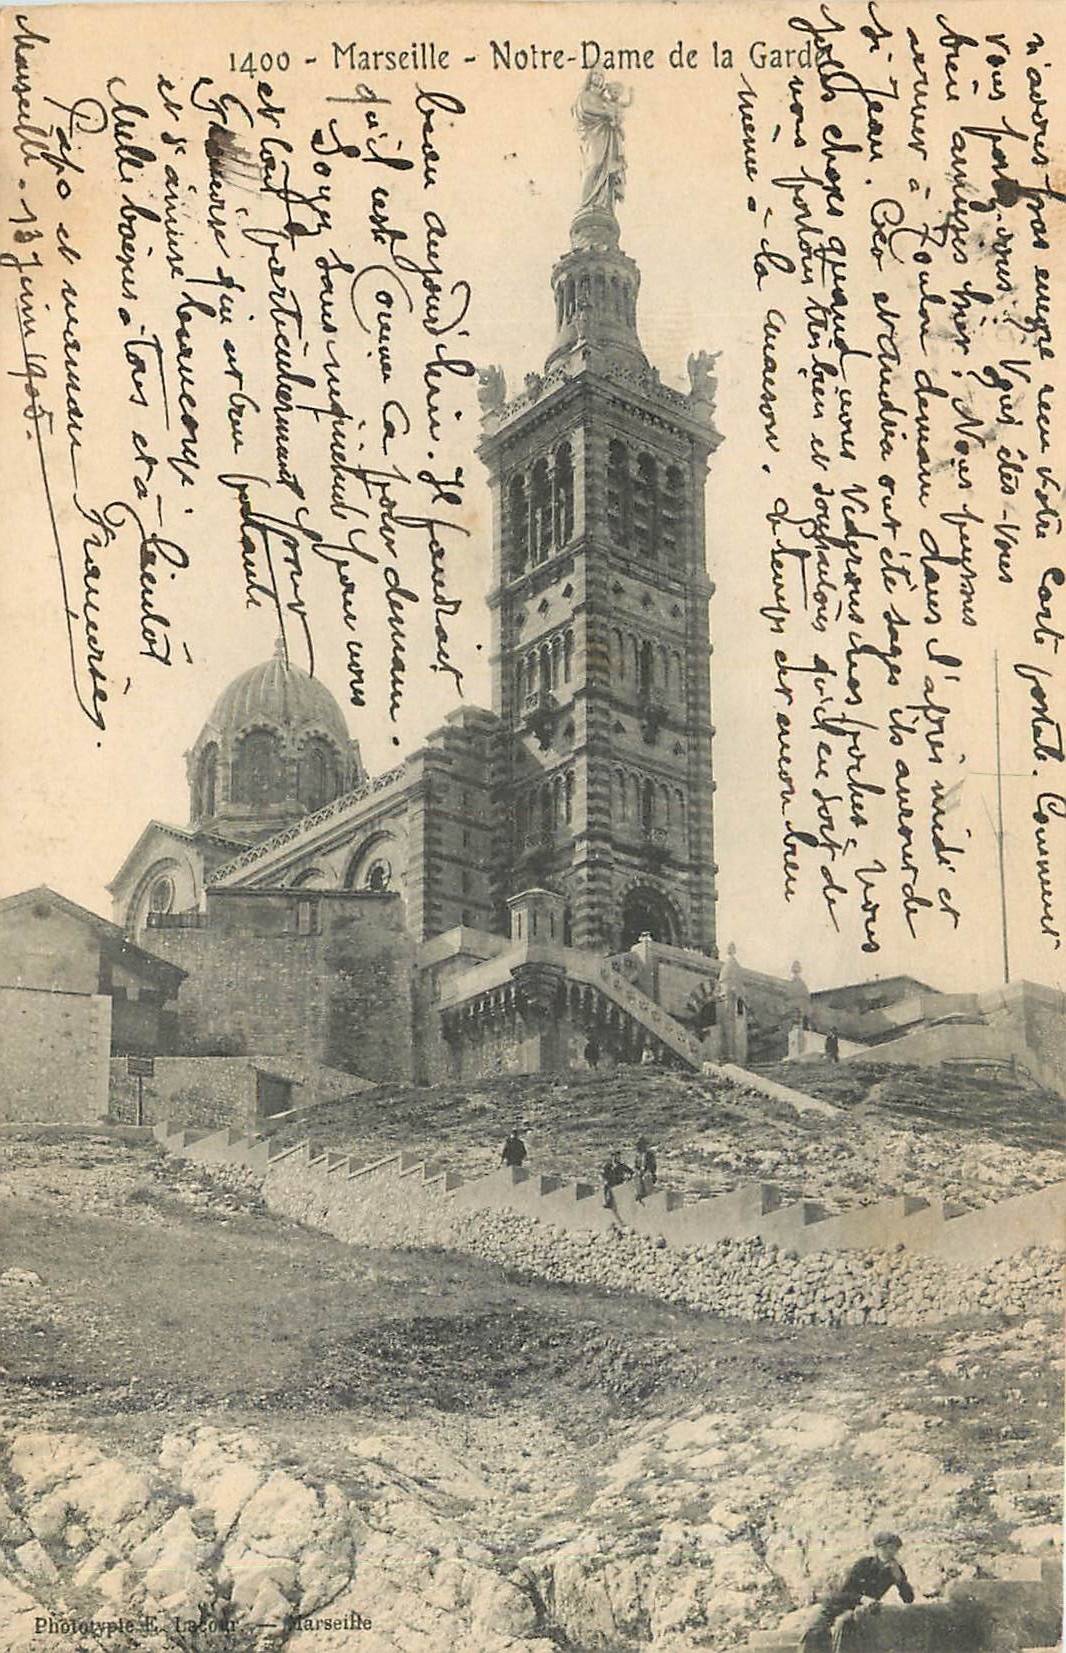 1400 - Marseille - Notre-Dame de la Garde
n'avons pas encore reçu votre Carte postale. Comment
vous portez-vous. Vous êtes-vous
bien amusés hier. Nous pensons
arriver à Toulon demain dans l'après midi et
si Jean. Géo et ont été sages ils auront de
jolies choses quand nous viderons nos poches. Vous
vous portons très bien et souhaitons qu'il en soit de
même à la maison. Le temps est encore bien
beau aujourd'hui. Il faudrait
qu'il reste comme ça pour demain.
Soyez sans inquiétude pour nous
et tout particulièrement pour
qui est bien portante
et s'amuse beaucoup.
Mille baisers à tous et à bientôt
Papo et maman Françoise.
Marseille. 13 Juin 1905.
Phototypie E. Lacour. — Marseille